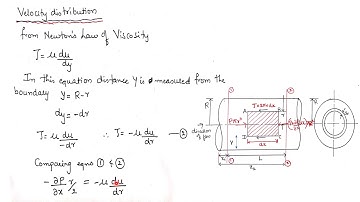 Velocity distribution
from Newton's Law of Viscosity
τ = μ du/dy
In this equation distance y is measured from the
boundary y = R-r
dy = -dr
τ = μ du/-dr ∴ τ = -μ du/dr — ②
Comparing eqns ① & ②
-∂P/∂x r/2 = -μ du/dr
τ×2πr×dx
A
R
r
dx
L
direction
of flow